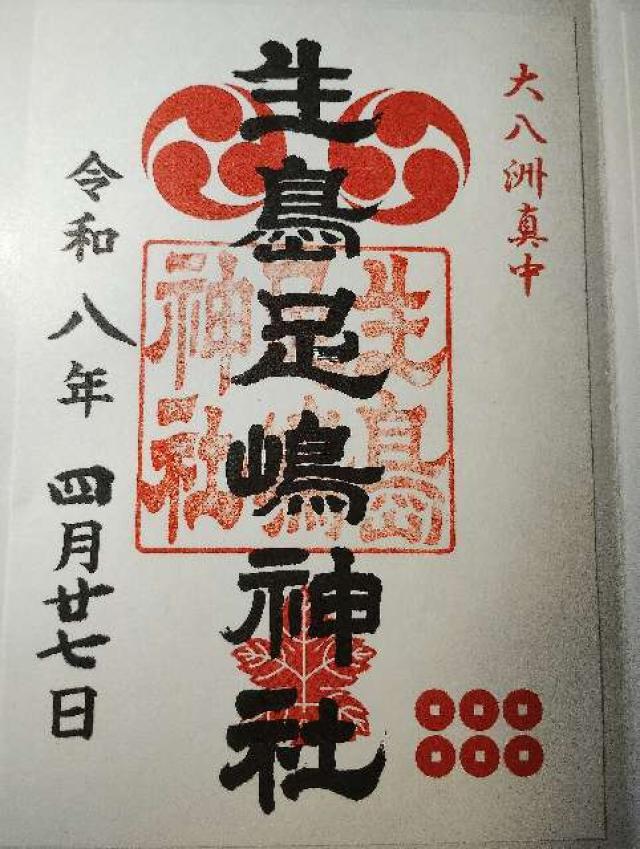 大八洲真中
生島足嶋神社
生島足嶋神社
令和八年 四月廿七日